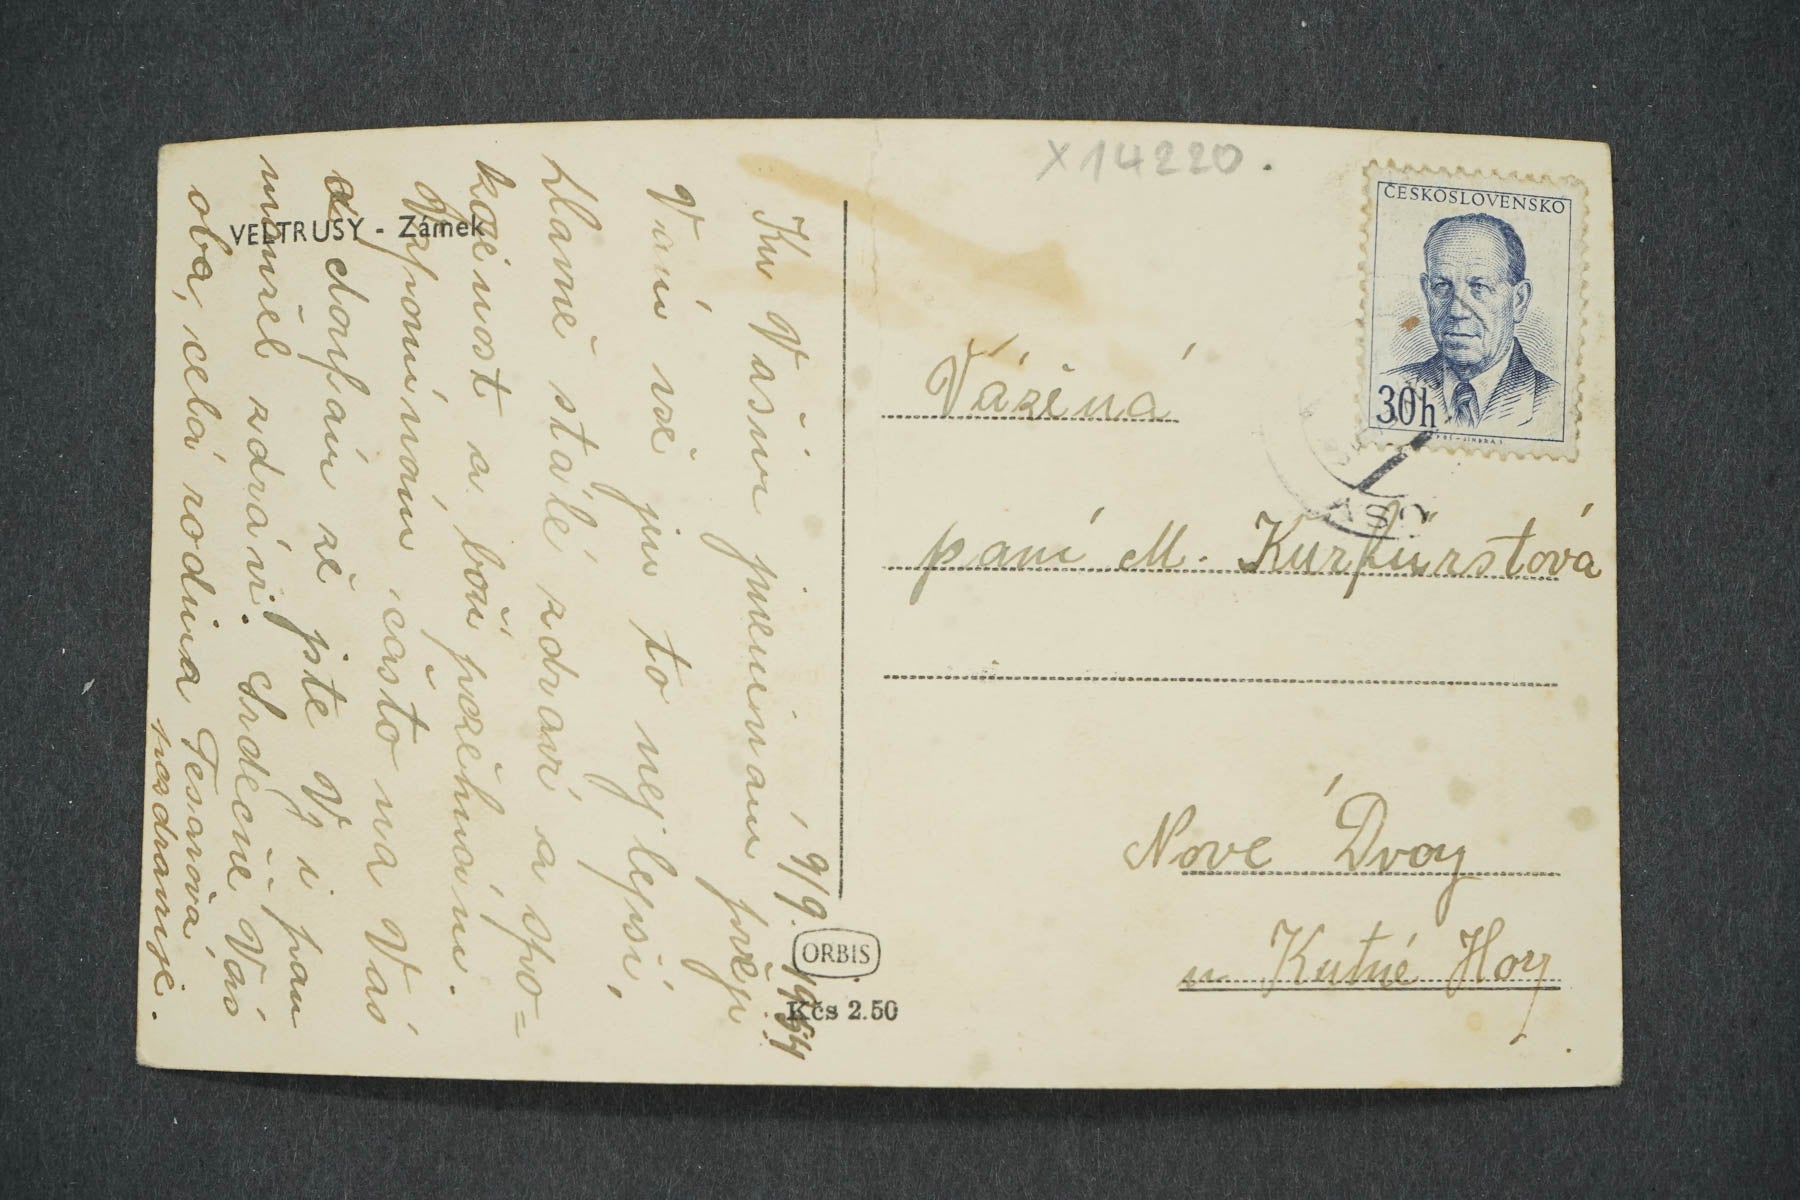 X14220.
ČESKOSLOVENSKO
30h
VELTRUSY - Zámek
9/9. 1954
Ku Vašim jmeninam přeji
Vám vše jen to nejlepší,
hlavně stálé zdraví a spo=
kojenost a boží požehnání.
Vzpomínám často na Vás
a doufám že jste Vy i pan
manžel zdrávi. Srdečně Vás
oba, celá rodina Tesařova
pozdravuje.
ORBIS
Kčs 2.50
Vážená
paní M. Kurfürstová
Nové Dvory
u Kutné Hory.